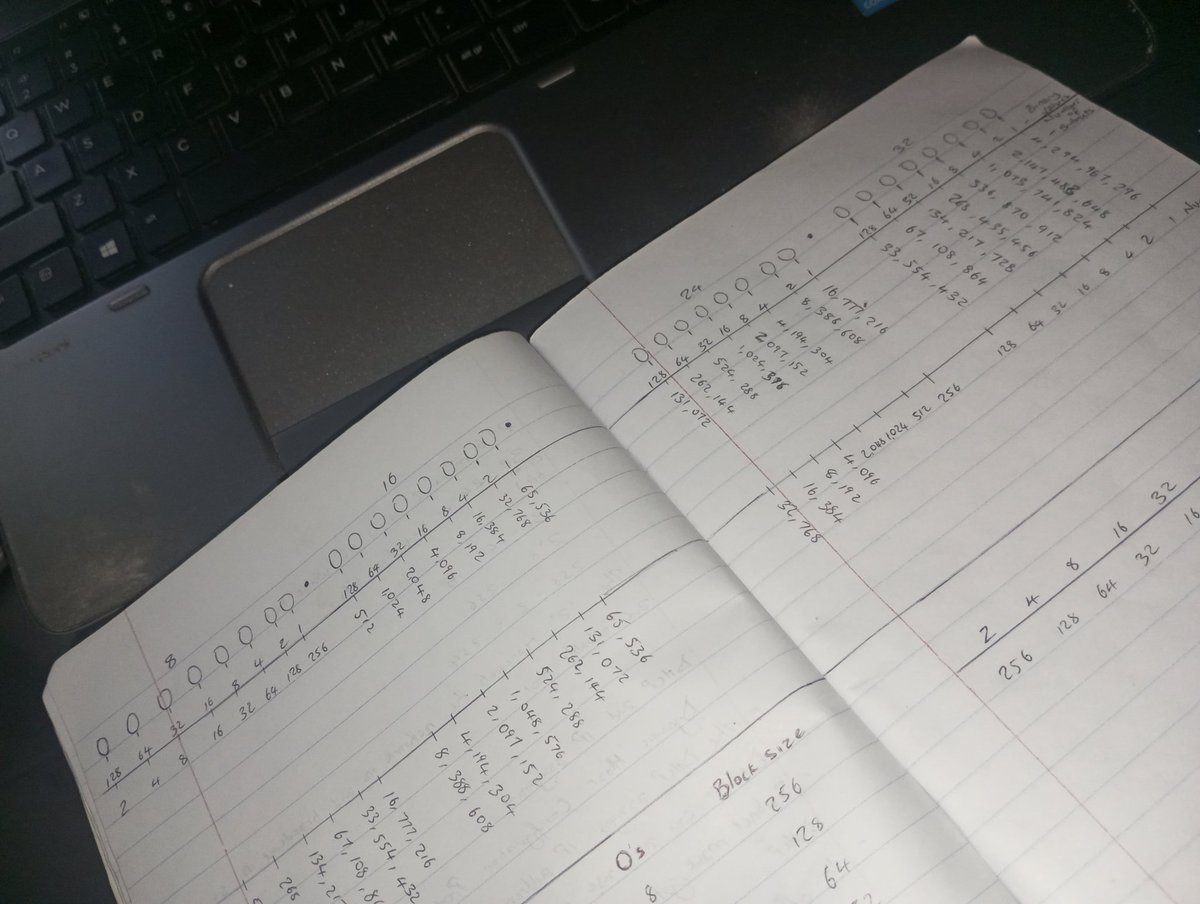 8 16
0 0 0 0 0 0 0 0 . 0 0 0 0 0 0 0 0 .
128 64 32 16 8 4 2 1 128 64 32 16 8 4 2 1
2 4 8 16 32 64 128 256 512 1024 2048 4,096 8,192 16,384 32,768 65,536
24 32
0 0 0 0 0 0 0 0 . 0 0 0 0 0 0 0 0
128 64 32 16 8 4 2 1 128 64 32 16 8 4 2 1
131,072 262,144 524,288 2,097,152 4,194,304 16,777,216 33,554,432 67,108,864 134,217,728 268,435,456 536,870,912 4,294,967,296
Number of
8,388,608 4,194,304 2,097,152 1,048,576 524,288 262,144 131,072 65,536
32,768 16,384 8,192 4,096 2048 1024 512 256 128 64 32 16 8 4 2 1
33,554,432 16,777,216
2 4 8 16 32
256 128 64 32 16
0's Block Size
8 256
128
64
Q W E R T
A S D F G H J K
Z X C V B N M